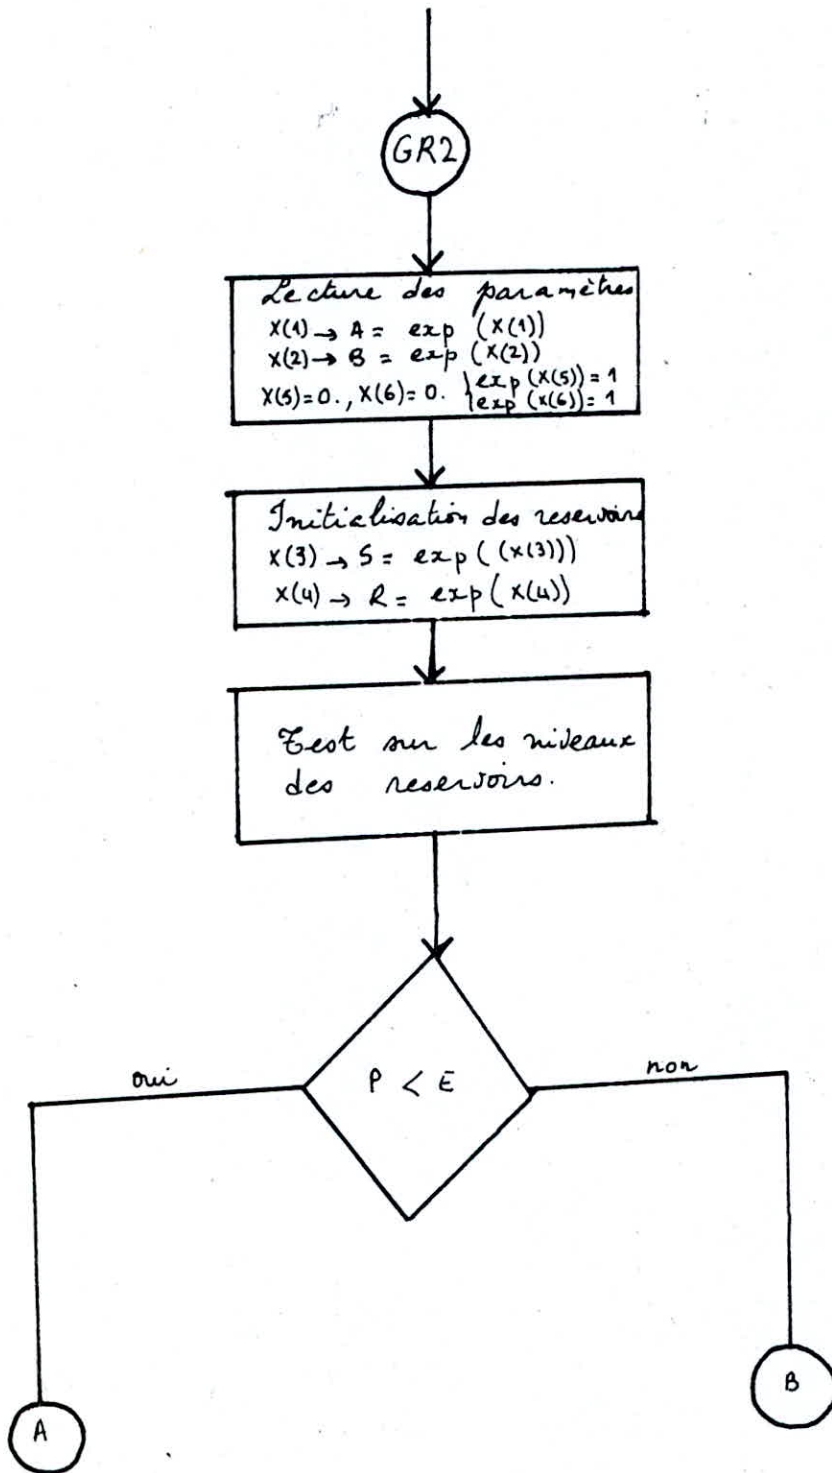 GR2
Lecture des paramètres
X(1) → A = exp (X(1))
X(2) → B = exp (X(2))
X(5)=0., X(6)=0. } exp (X(5)) = 1
} exp (X(6)) = 1
Initialisation des reservoirs
X(3) → S = exp((X(3)))
X(4) → R = exp(X(4))
Test sur les niveaux
des reservoirs.
P < E
oui
non
A
B